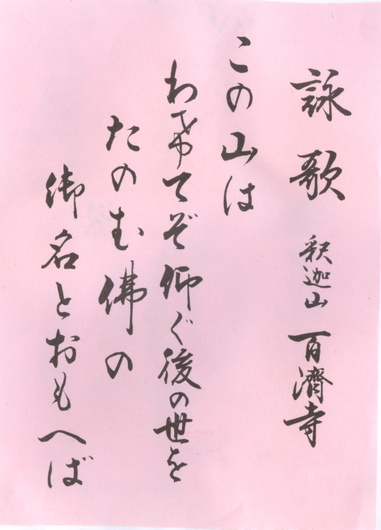 詠歌 釈迦山 百濟寺
この山は
わ希てぞ仰ぐ後の世を
たのむ佛の
御名とおもへば